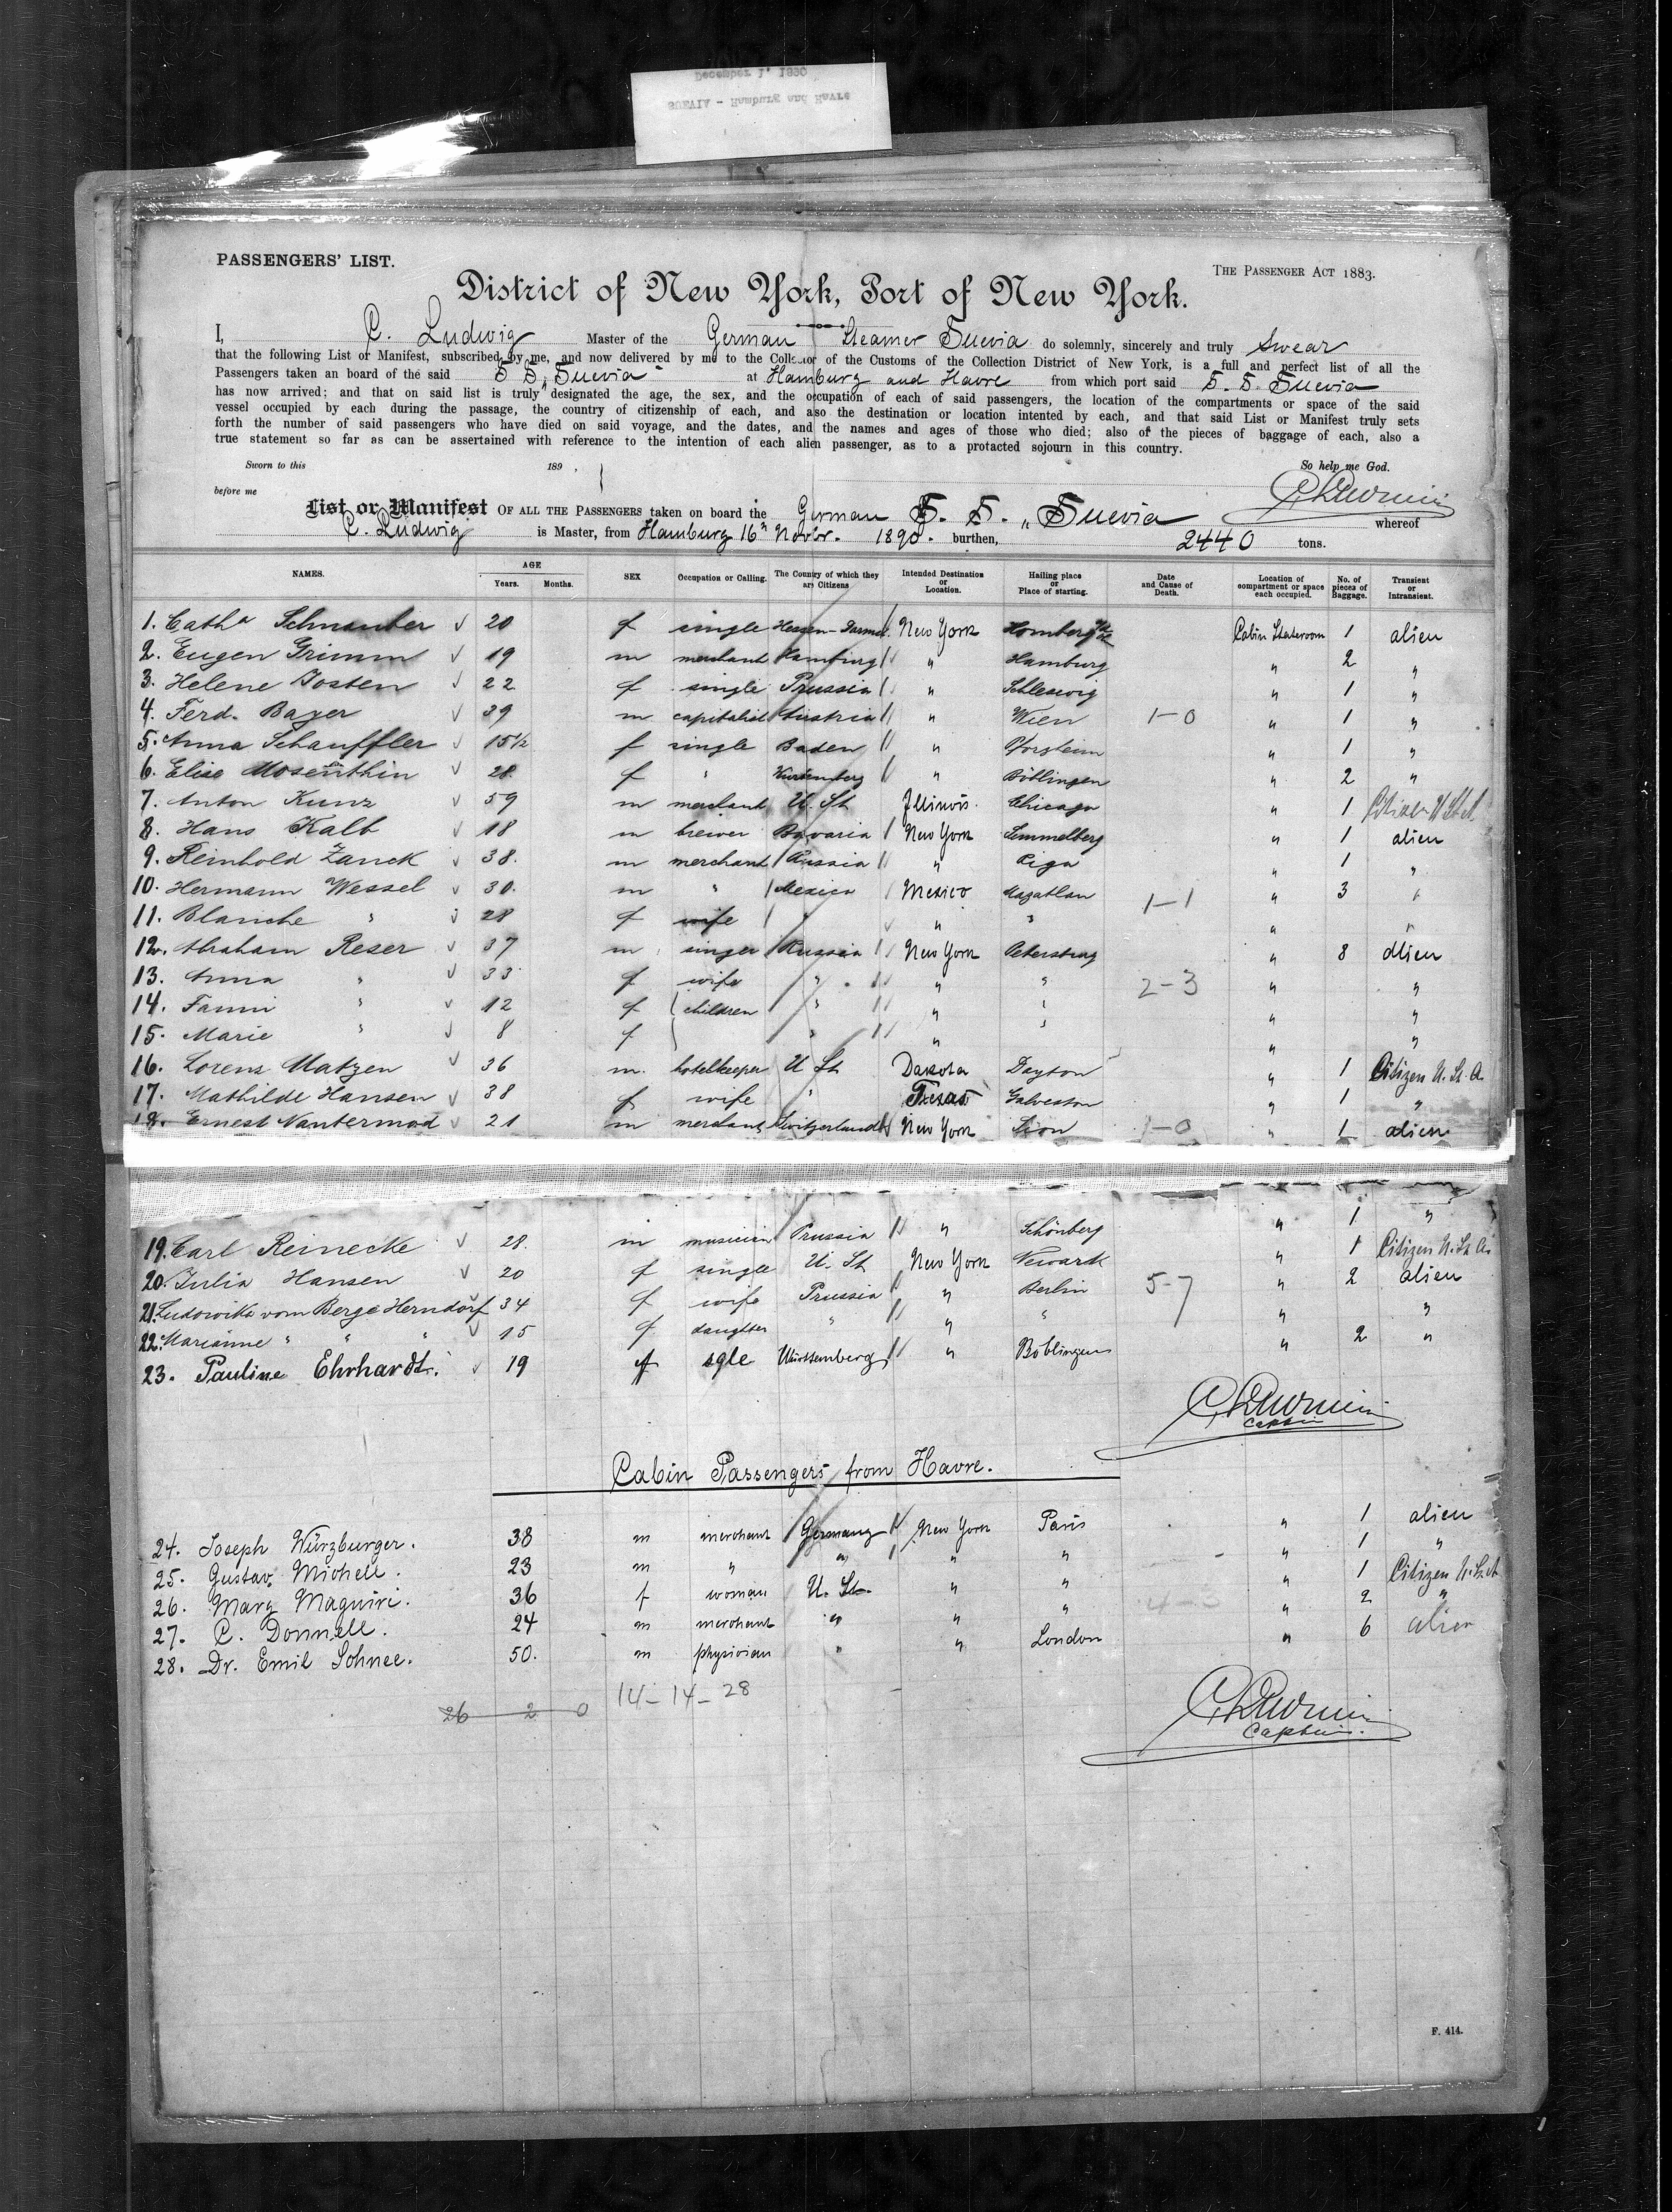 December 1, 1890
SUEVIA - Hamburg and Havre
PASSENGERS' LIST.
THE PASSENGER ACT 1883.
District of New York, Port of New York.
I, C. Ludwig Master of the German Steamer Suevia do solemnly, sincerely and truly swear
that the following List or Manifest, subscribed by me, and now delivered by me to the Collector of the Customs of the Collection District of New York, is a full and perfect list of all the
Passengers taken an board of the said S. S. "Suevia" at Hamburg and Havre from which port said S. S. Suevia
has now arrived; and that on said list is truly designated the age, the sex, and the occupation of each of said passengers, the location of the compartments or space of the said
vessel occupied by each during the passage, the country of citizenship of each, and also the destination or location intented by each, and that said List or Manifest truly sets
forth the number of said passengers who have died on said voyage, and the dates, and the names and ages of those who died; also of the pieces of baggage of each, also a
true statement so far as can be assertained with reference to the intention of each alien passenger, as to a protacted sojourn in this country.
Sworn to this 189 ,
So help me God.
before me
List or Manifest OF ALL THE PASSENGERS taken on board the German S. S. "Suevia whereof
C. Ludwig is Master, from Hamburg 16n Novbr. 1890. burthen, 2440 tons.
NAMES. AGE Years. Months. SEX Occupation or Calling. The Country of which they are Citizens Intended Destination or Location. Hailing place or Place of starting. Date and Cause of Death. Location of compartment or space each occupied. No. of pieces of Baggage. Transient or Intransient.
1. Catha Schnauber √ 20 f single Hessen-Darmst. New York Homberg Cabin Stateroom 1 alien
2. Eugen Grimm √ 19 m merchant Hamburg " Hamburg " 2 "
3. Helene Josten √ 22 f single Prussia " Schleswig " 1 "
4. Ferd. Bayer √ 39 m capitalist Austria " Wien 1-0 " 1 "
5. Anna Schauffler √ 15½ f single Baden " Pforzheim " 1 "
6. Elise Mosenthin √ 28 f " Wurtemberg " Böblingen " 2 "
7. Anton Kunz √ 59 m merchant U. St Illinois. Chicago " 1 Citizen U St A
8. Hans Kalb √ 18 m brewer Bavaria New York Semmelberg " 1 alien
9. Reinhold Zanck √ 38. m merchant Russia " Riga " 1 "
10. Hermann Wessel √ 30. m " Mexico Mexico Mazatlan 1-1 " 3 "
11. Blanche " √ 28 f wife " " " " "
12. Abraham Reser √ 37 m singer Russia New York Petersburg " 8 alien
13. Anna " √ 33 f wife " " " 2-3 " "
14. Fanni " √ 12 f children " " " " "
15. Marie " √ 8 f " " " " "
16. Lorenz Matzen √ 36 m. hotelkeeper U St Dakota Dayton " 1 Citizen U. St. A.
17. Mathilde Hansen √ 38 f wife " Texas Galveston " 1 "
18. Ernest Nantermod √ 21 m merchant Switzerland New York Sion 1-0 " 1 alien
19. Carl Reinecke √ 28. m musician Prussia " Schönberg " 1 "
20. Julia Hansen √ 20 f single U. St New York Newark " 1 Citizen U. St. A.
21. Ludowika vom Berge Herndorf 34 f wife Prussia " Berlin 5-7 " 2 alien
22. Marianne " " " √ 15 f daughter " " " " "
23. Pauline Ehrhardt. √ 19 f sgle Württemberg " Böblingen " 2 "
Captain
Cabin Passengers from Havre.
24. Joseph Würzburger. 38 m merchant Germany New York Paris " 1 alien
25. Gustav Michell. 23 m " " " " " 1 "
26. Mary Maguire. 36 f woman U. St. " " " 1 Citizen U. St. A
27. C. Donnell. 24 m merchant " " " " 2 "
28. Dr. Emil Schnee. 50. m physician " " London " 6 alien
26 2 0 14-14-28
Captain.
F. 414.